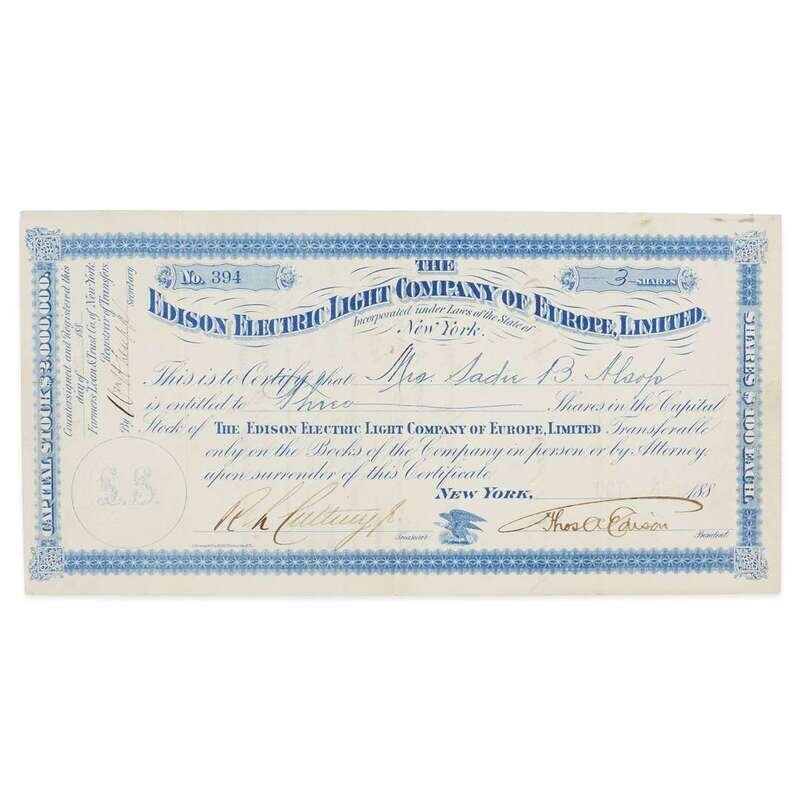 No. 394
3 SHARES
THE
EDISON ELECTRIC LIGHT COMPANY OF EUROPE, LIMITED.
Incorporated under Laws of the State of
New York.
This is to Certify that Mrs. Sadie B. Alsop
is entitled to Three Shares in the Capital
Stock of THE EDISON ELECTRIC LIGHT COMPANY OF EUROPE, LIMITED Transferable
only on the Books of the Company in person or by Attorney
upon surrender of this Certificate
NEW YORK, 188
R L Cutting jr. Treasurer
Thos A Edison President
CAPITAL STOCK $2,000,000.
Countersigned and Registered this
day of 188
Farmers Loan & Trust Co. of New York
Registrar of Transfers
By Secretary
SHARES $100 EACH.